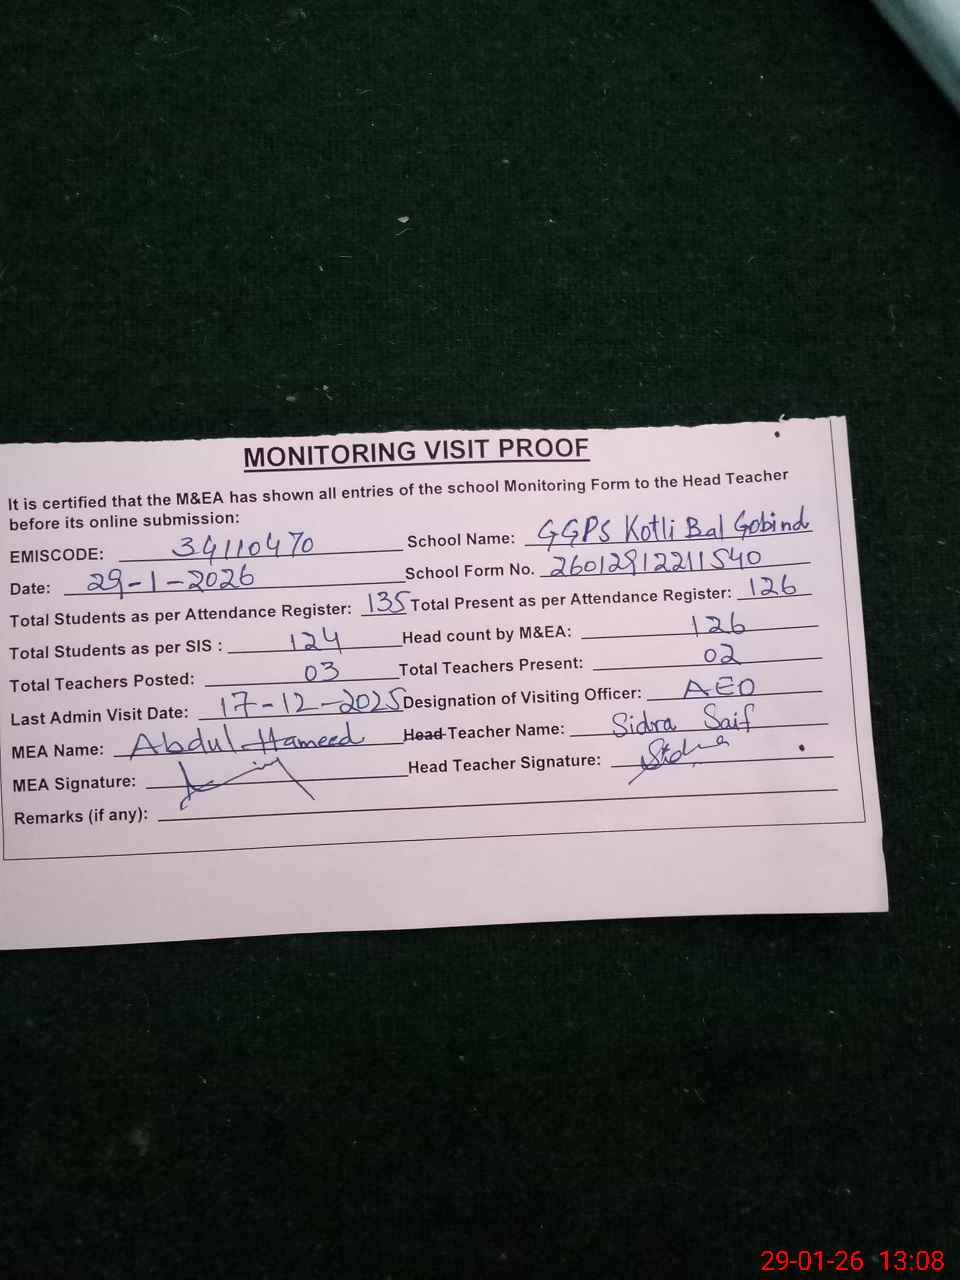 MONITORING VISIT PROOF
It is certified that the M&EA has shown all entries of the school Monitoring Form to the Head Teacher
before its online submission:
EMISCODE: 34110470 School Name: GGPS Kotli Bal Gobind
Date: 29-1-2026 School Form No. 26012912211540
Total Students as per Attendance Register: 135 Total Present as per Attendance Register: 126
Total Students as per SIS : 124 Head count by M&EA: 126
Total Teachers Posted: 03 Total Teachers Present: 02
Last Admin Visit Date: 17-12-2025 Designation of Visiting Officer: AEO
MEA Name: Abdul Hameed Head Teacher Name: Sidra Saif
MEA Signature: Head Teacher Signature: Sidra
Remarks (if any):
29-01-26 13:08